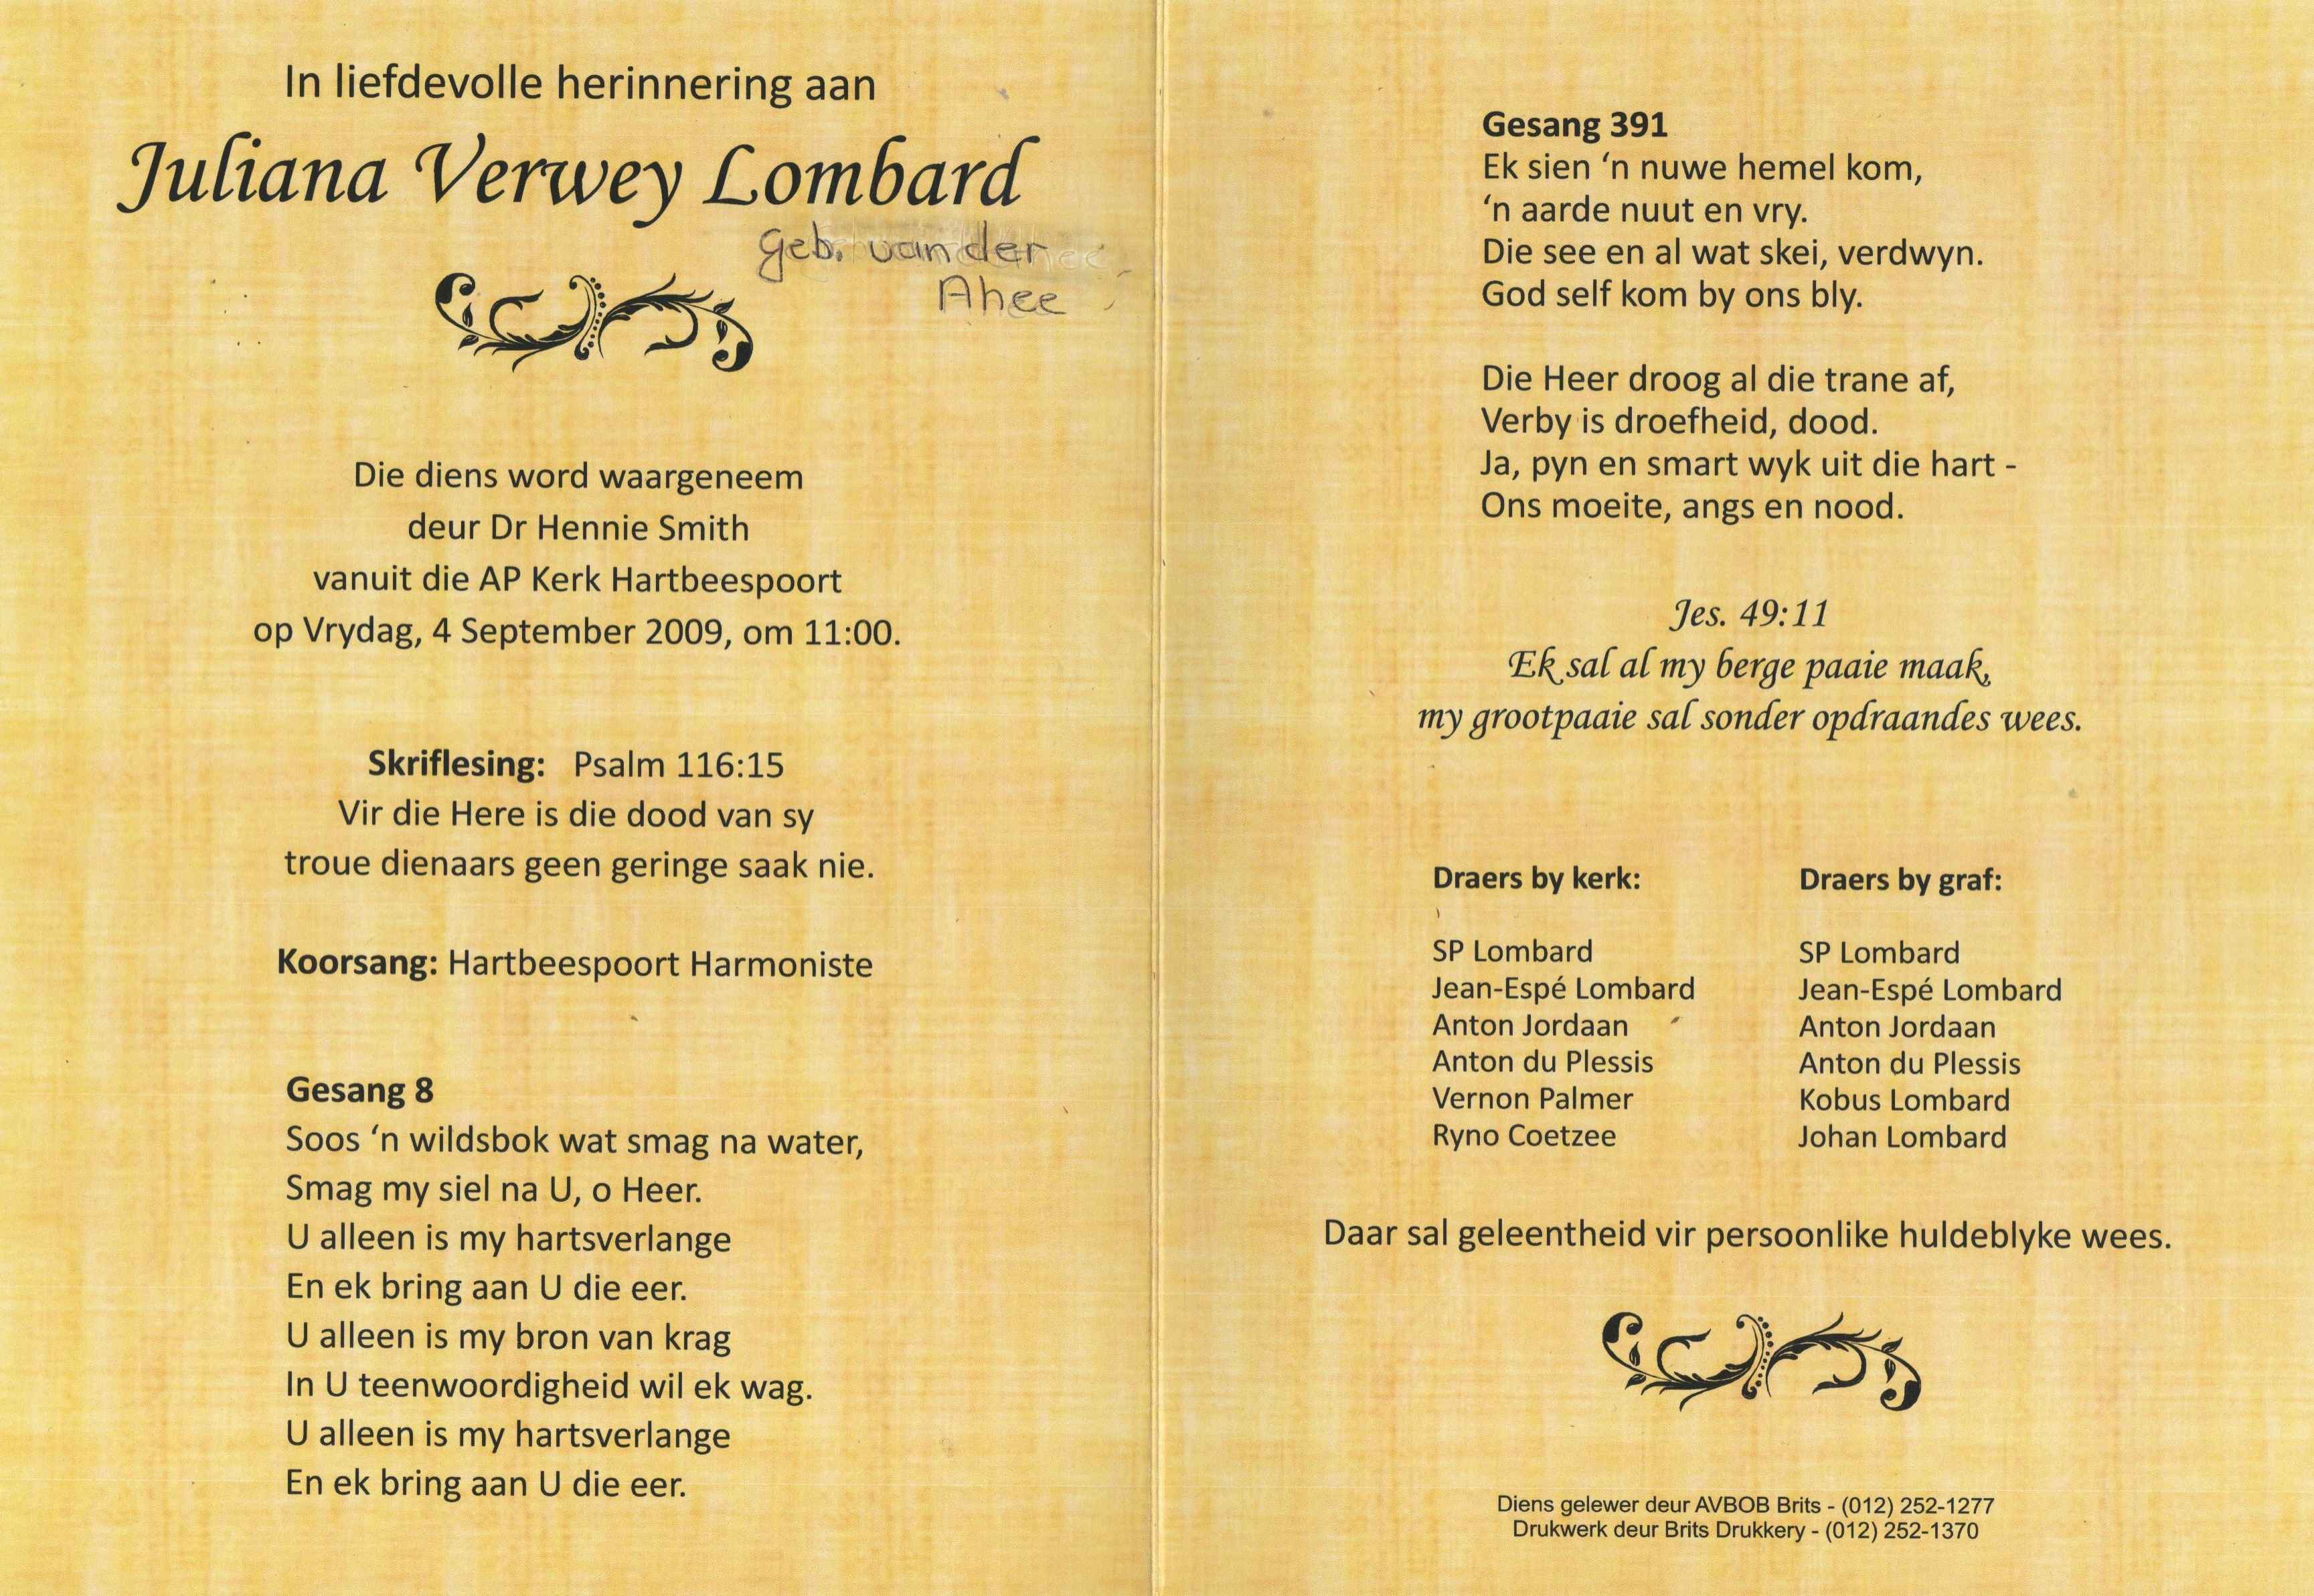 In liefdevolle herinnering aan
Juliana Verwey Lombard
Geb. van der
Ahee
Die diens word waargeneem
deur Dr Hennie Smith
vanuit die AP Kerk Hartbeespoort
op Vrydag, 4 September 2009, om 11:00.
Skriflesing: Psalm 116:15
Vir die Here is die dood van sy
troue dienaars geen geringe saak nie.
Koorsang: Hartbeespoort Harmoniste
Gesang 8
Soos ‘n wildsbok wat smag na water,
Smag my siel na U, o Heer.
U alleen is my hartsverlange
En ek bring aan U die eer.
U alleen is my bron van krag
In U teenwoordigheid wil ek wag.
U alleen is my hartsverlange
En ek bring aan U die eer.
Gesang 391
Ek sien ‘n nuwe hemel kom,
‘n aarde nuut en vry.
Die see en al wat skei, verdwyn.
God self kom by ons bly.
Die Heer droog al die trane af,
Verby is droefheid, dood.
Ja, pyn en smart wyk uit die hart -
Ons moeite, angs en nood.
Jes. 49:11
Ek sal al my berge paaie maak,
my grootpaaie sal sonder opdraandes wees.
Draers by kerk:
SP Lombard
Jean-Espé Lombard
Anton Jordaan
Anton du Plessis
Vernon Palmer
Ryno Coetzee
Draers by graf:
SP Lombard
Jean-Espé Lombard
Anton Jordaan
Anton du Plessis
Kobus Lombard
Johan Lombard
Daar sal geleentheid vir persoonlike huldeblyke wees.
Diens gelewer deur AVBOB Brits - (012) 252-1277
Drukwerk deur Brits Drukkery - (012) 252-1370